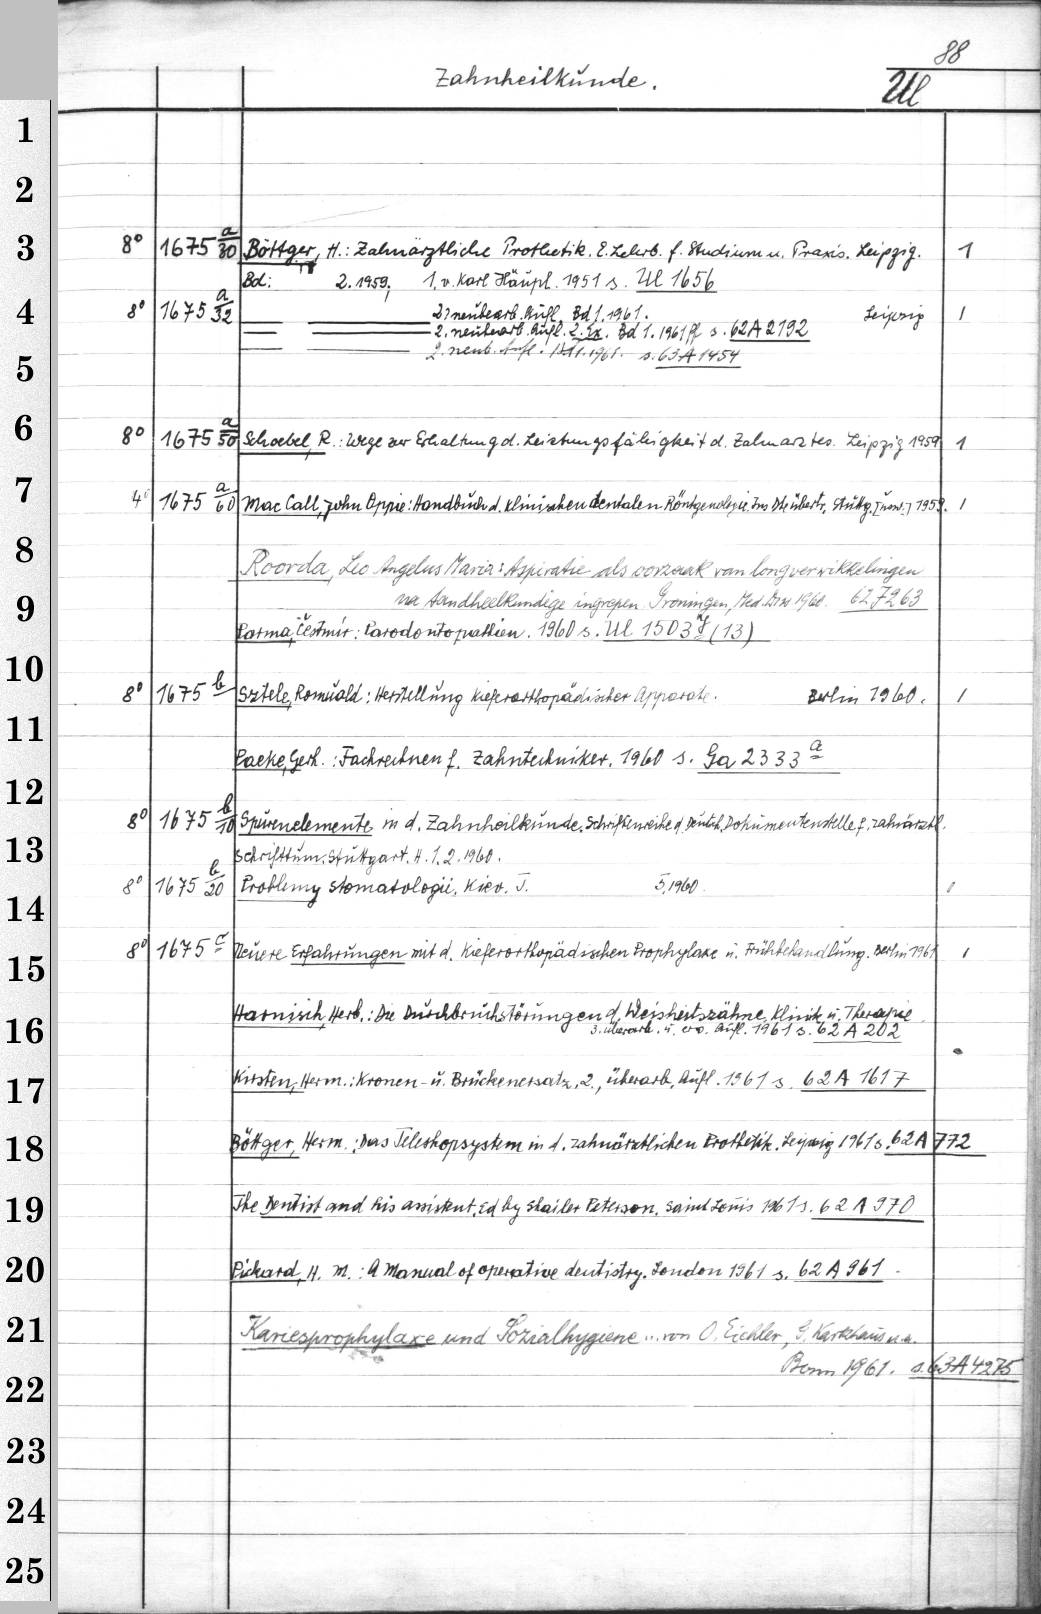 88
Zahnheilkunde.
Ul
1
2
3
8° 1675 a/30 Böttger, H.: Zahnärztliche Prothetik. E. Lehrb. f. Studium u. Praxis. Leipzig. 1
Bd: 2. 1959; 1. v. Karl Häupl. 1951 s. Ul 1656
4
8° 1675 a/32 2. neubearb. Aufl. Bd 1. 1961. Leipzig 1
2. neubearb. Aufl. 2. Ex. Bd 1. 1961 ff s. 62 A 2192
2. neub. Aufl. Bd 1. 1961. s. 63 A 1454
5
6
8° 1675 a/50 Schoebel, R.: Wege zur Erhaltung d. Leistungsfähigkeit d. Zahnarztes. Leipzig 1959 1
7
4° 1675 a/60 Mac Call, John Oppie: Handbuch d. klinischen dentalen Röntgenologie. Ins Dte übertr. Stuttg. [usw.] 1959. 1
8
Roorda, Leo Angelus Maria: Aspiratie als oorzaak van longverwikkelingen
9
na tandheelkundige ingrepen. Groningen, Med. Diss 1960. 62 7263
Parma, Čestmír: Parodontopathien. 1960 s. Ul 1503 (13)
10
8° 1675 b Sztele, Romuald: Herstellung kieferorthopädischer Apparate. Berlin 1960. 1
11
Paeke, Gerh.: Fachrechnen f. Zahntechniker. 1960 s. Ga 2333 a
12
8° 1675 b/10 Spurenelemente in d. Zahnheilkunde. Schriftenreihe d. Deutsch. Dokumentenstelle f. zahnärztl.
13
Schrifttum. Stuttgart. H. 1. 2. 1960.
8° 1675 b/20 Problemy stomatologii. Kiev. T. 5, 1960
14
8° 1675 c Neuere Erfahrungen mit d. Kieferorthopädischen Prophylaxe u. Frühbehandlung. Berlin 1961 1
15
Harnisch, Herb.: Die Durchbruchstörungen d. Weisheitszähne, Klinik u. Therapie
16
3. überarb. u. erw. Aufl. 1961 s. 62 A 202
17
Kirsten, Herm.: Kronen- u. Brückenersatz, 2., überarb. Aufl. 1961 s. 62 A 1617
18
Böttger, Herm.: Das Teleskopsystem in d. zahnärztlichen Prothetik. Leipzig 1961 s. 62 A 772
19
The Dentist and his assistent. Ed by Shailer Peterson. Saint Louis 1961 s. 62 A 970
20
Pickard, H. M.: A Manual of operative dentistry. London 1961 s. 62 A 961
21
Kariesprophylaxe und Sozialhygiene ... von O. Eichler, G. Korkhaus u. a.
Bonn 1961. s. 63 A 4275
22
23
24
25